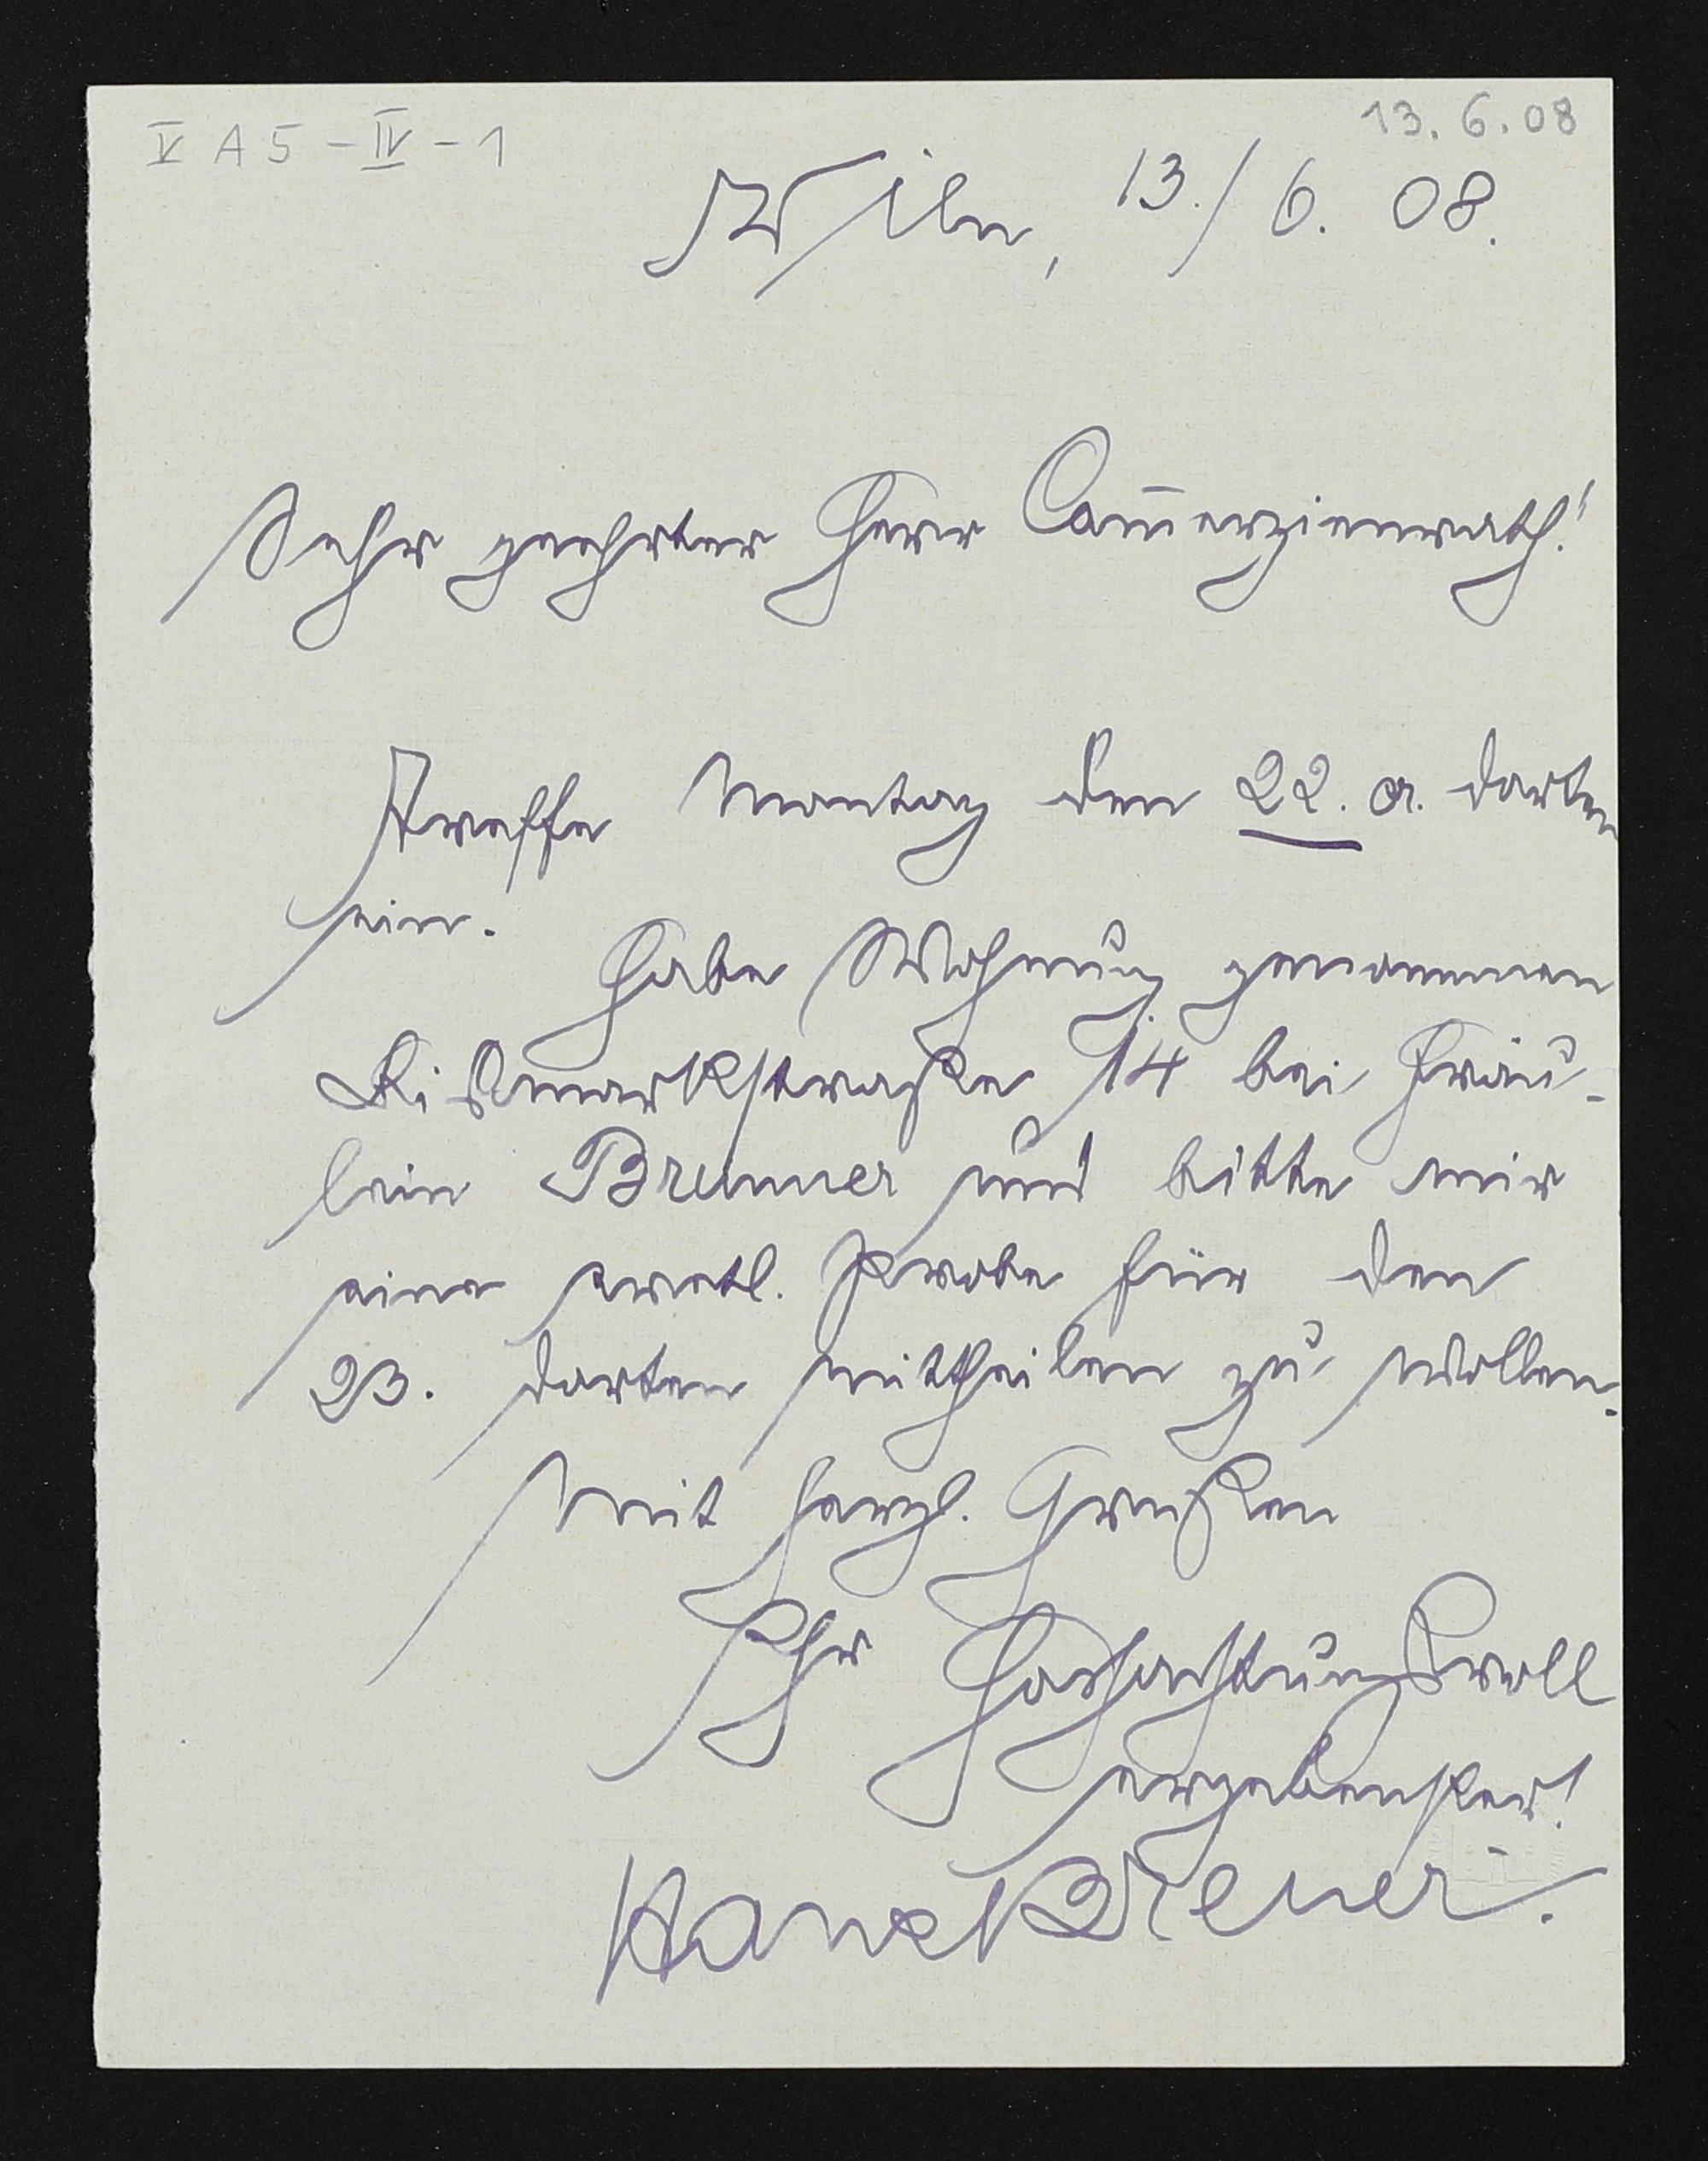 V A 5 - IV - 1
13. 6. 08
Wien, 13./6. 08.
Sehr geehrter Herr Com̅erzienrath!
Treffe Montag den 22. cr. dorten
ein.
Habe Wohnung genommen
Bismarkstraße 14 bei Fräu-
lein Brunner und bitte mir
eine evetl. Probe für den
23. dorten mittheilen zu wollen.
Mit herzl. Grüßen
Ihr Hochachtungsvoll
ergebenster!
Hans